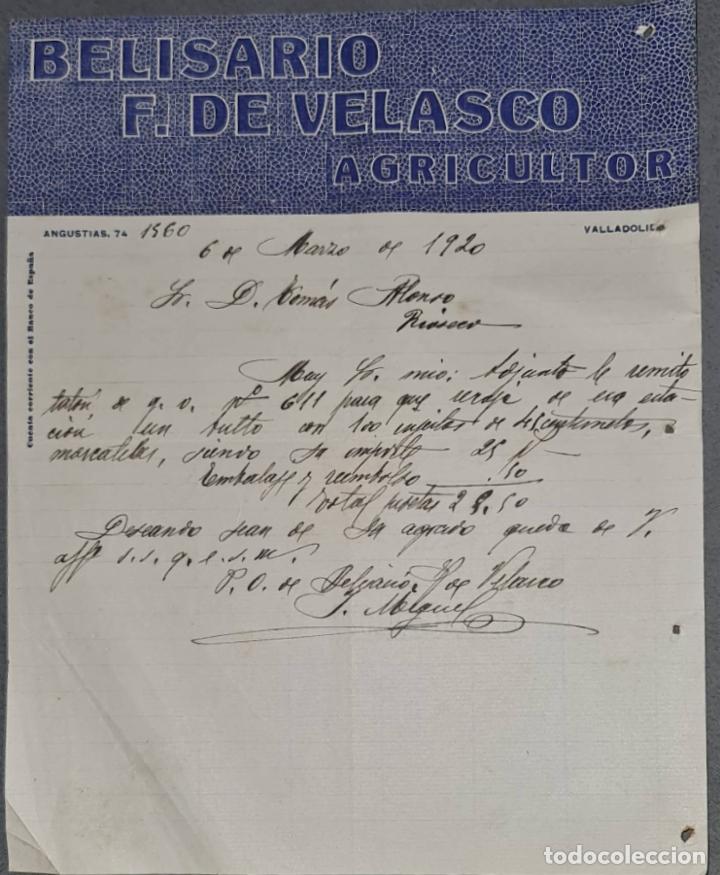 BELISARIO
F. DE VELASCO
AGRICULTOR
ANGUSTIAS, 74 1560
VALLADOLID
Cuenta corriente con el Banco de España
6 de Marzo de 1920
Sr. D. Tomás Alonso
Rioseco
Muy Sr. mio: Adjunto le remito
talón de g. v. nº 611 para que recoja de esa esta-
ción un bulto con 100 injertos de 45 centimetros,
moscateles, siendo su importe 25 "
Embalaje y reembolso .50
Total pesetas 25.50
Deseando sean de su agrado queda de V.
affº s. s. q. e. s. m.
P. O. de Belisario F. de Velasco
J. Miguel
todocoleccion